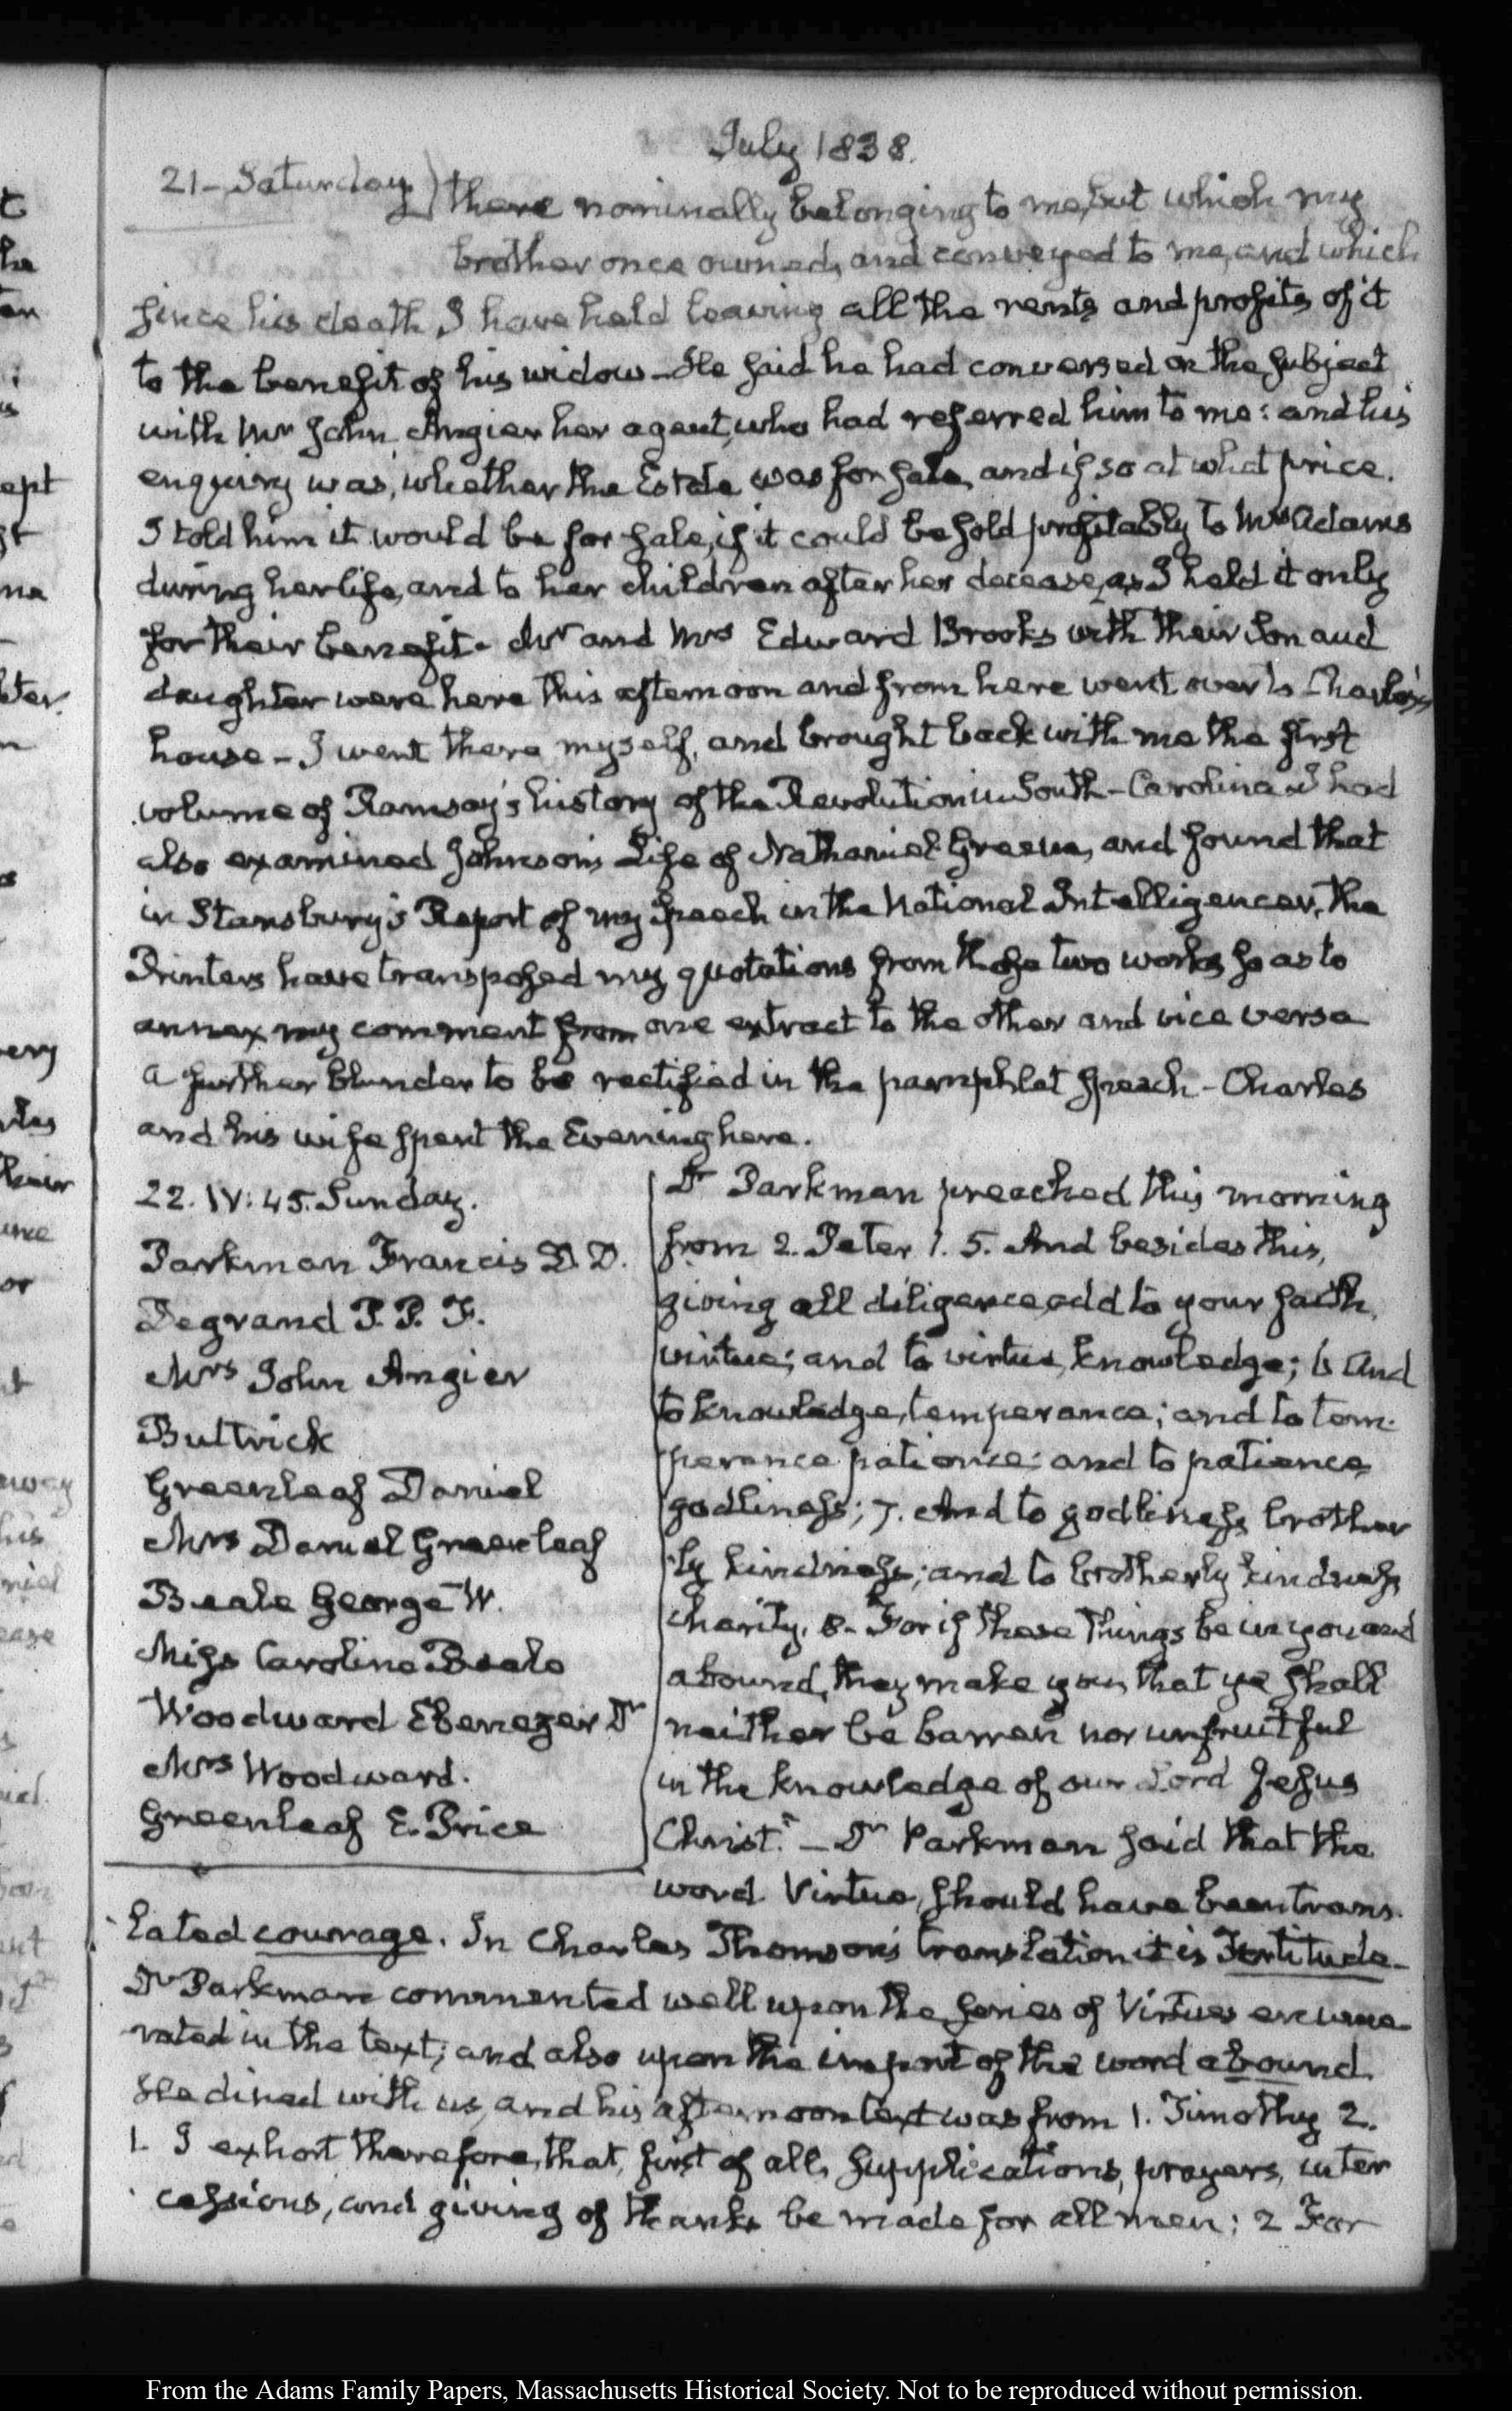 July 1838.
21 - Saturday) there nominally belonging to me, but which my
brother once owned, and conveyed to me, and which
since his death I have held leaving all the rents and profits of it
to the benefit of his widow - He said he had conversed on the subject
with Mr John Angier her agent, who had referred him to me: and his
enquiry was, whether the Estate was for sale, and if so at what price.
I told him it would be for sale, if it could be sold profitably to Mrs Adams
during her life, and to her children after her decease, as I held it only
for their benefit. Mr and Mrs Edward Brooks with their Son and
daughter were here this afternoon and from here went over to Charles's
house - I went there myself, and brought back with me the first
volume of Ramsay's history of the Revolution in South-Carolina I had
also examined Johnson's Life of Nathaniel Greene, and found that
in Stansbury's Report of my Speech in the National Intelligencer, the
Printers have transposed my quotations from those two works so as to
annex my comment from one extract to the other and vice versa
a further blunder to be rectified in the pamphlet speech - Charles
and his wife spent the Evening here.
22. IV: 45. Sunday.
Parkman Francis D.D.
Degrand P. P. F.
Mrs John Angier
Buttrick
Greenleaf Daniel
Mrs Daniel Greenleaf
Beale George W.
Miss Caroline Beale
Woodward Ebenezer Dr
Mrs Woodward.
Greenleaf E. Price
Dr Parkman preached this morning
from 2. Peter 1. 5. And besides this,
giving all diligence, add to your faith,
virtue; and to virtue, knowledge; 6 And
to knowledge, temperance; and to tem-
perance patience; and to patience
godliness; 7. And to godliness brother
ly kindness; and to brotherly kindness,
charity. 8. For if these things be in you and
abound, they make you that ye shall
neither be barren nor unfruitful
in the knowledge of our Lord Jesus
Christ." - Dr Parkman said that the
word Virtue, should have been trans-
lated courage. In Charles Thomson's translation it is Fortitude -
Dr Parkman commented well upon the series of Virtues enume-
rated in the text; and also upon the import of the word abound.
He dined with us, and his afternoon text was from 1. Timothy 2.
1. I exhort therefore, that, first of all, supplications, prayers, inter
cessions, and giving of thanks be made for all men; 2 For
From the Adams Family Papers, Massachusetts Historical Society. Not to be reproduced without permission.